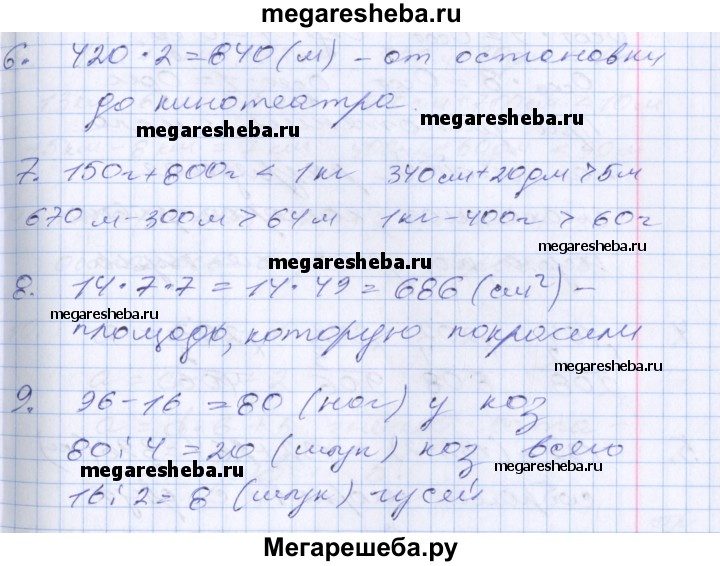 megaresheba.ru
6. 420·2=840(м) – от остановки
до кинотеатра.
megaresheba.ru
megaresheba.ru
7. 150г+800г < 1кг 340см+20дм>5м
670м-300м>64м 1кг-400г > 60г
megaresheba.ru
megaresheba.ru
8. 14·7·7=14·49=686(см²)–
megaresheba.ru
площадь, которую покрасили
megaresheba.ru
9. 96-16=80 (ног) у коз
80:4=20 (штук) коз всего
megaresheba.ru
megaresheba.ru
16:2=8 (штук) гусей
megaresheba.ru
Мегарешеба.ру